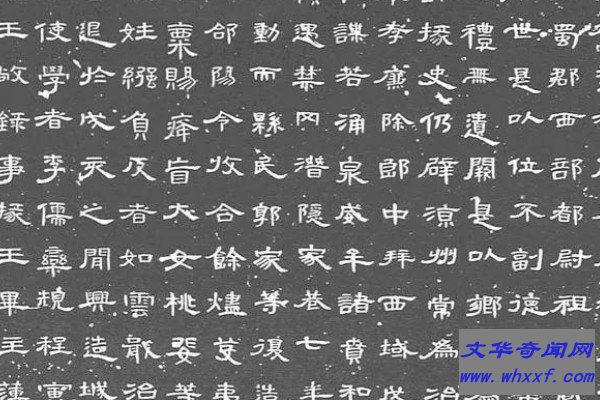 蜀郡西部都尉祖
世是以位不副德
禮無遺闕是以鄉
掾史仍辟涼州常為治
孝廉除郎中拜西域戊
謀若涌泉威牟諸賁和
遇禁冈潛隱家巷七年
動而縣民郭家等復造
郃陽令收合餘燼芟夷
稟賜癃盲大女桃婓等
娃繦負反者如雲戢治
退於戌亥之間興造城
使學者李儒欒規程寅
王敞錄事掾王畢王
文华奇闻网
www.whxxf.com